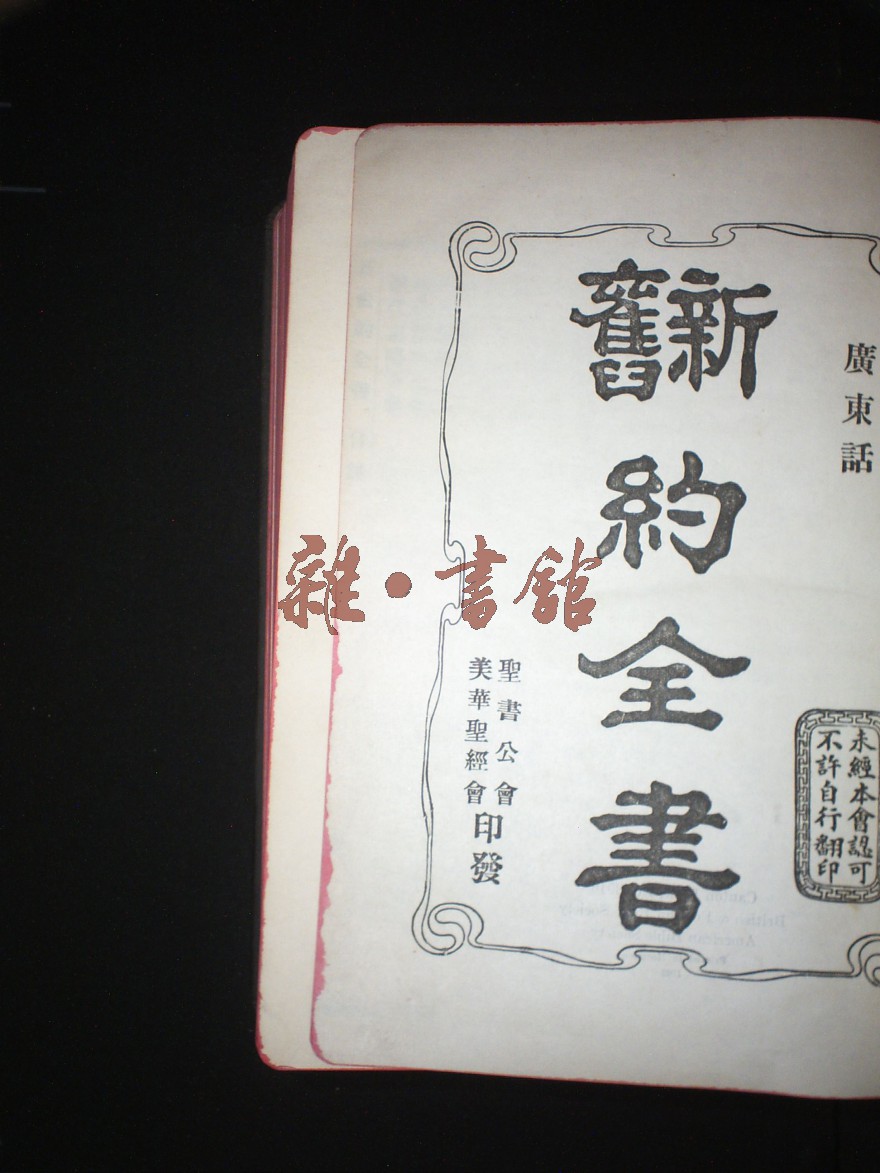 廣東話
新舊約全書
聖書公會
美華聖經會
印發
未經本會認可
不許自行翻印
雜·書館